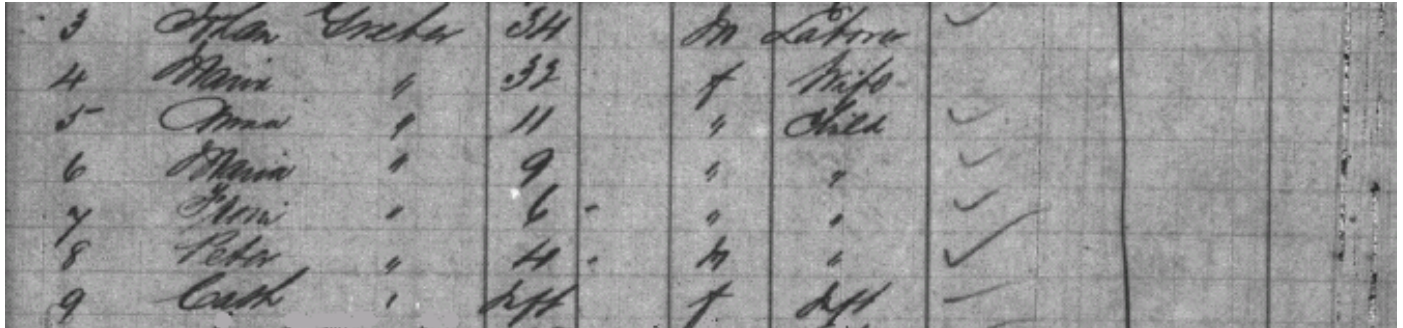 3 Johan Greber 34 m Laborer
4 Maria " 32 f Wife
5 Anna " 11 " Child
6 Maria " 9 " "
7 " 6 - " "
8 Peter " 4 - m " 
9 Cath " Inft f Inft